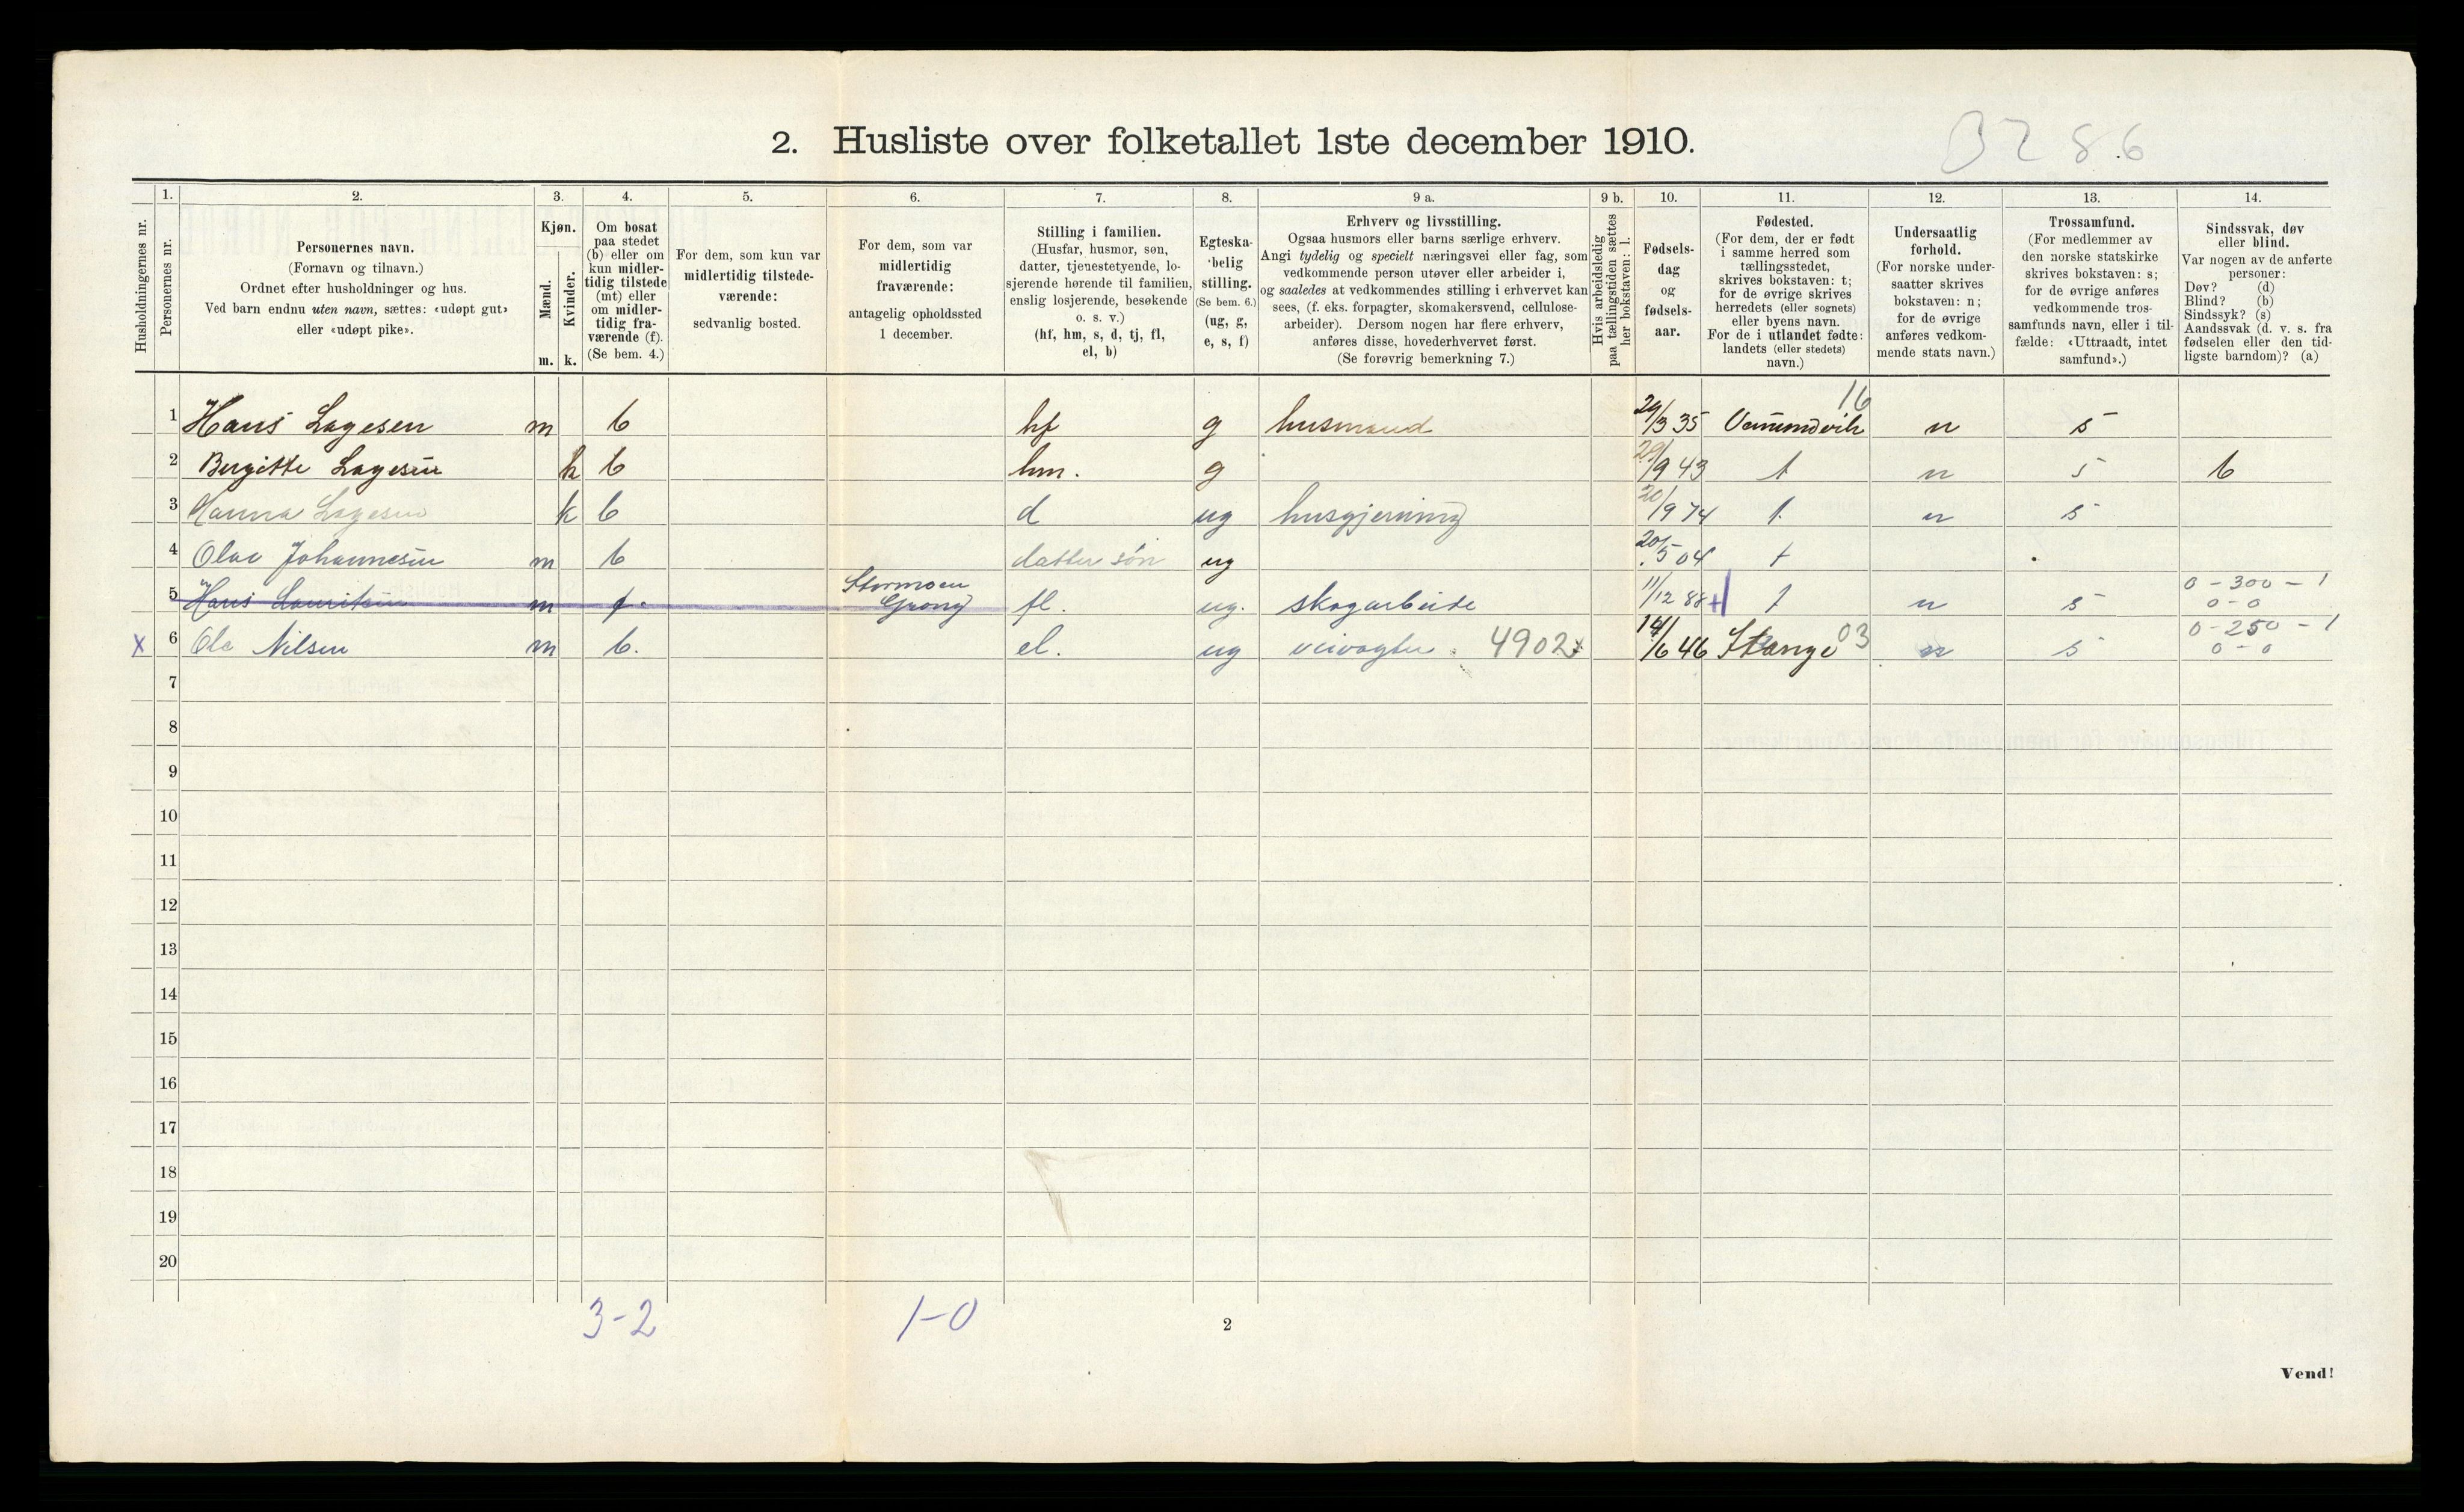 2. Husliste over folketallet 1ste december 1910.
B286
Husholdningernes nr.
1.
Personernes nr.
2.
Personernes navn.
(Fornavn og tilnavn.)
Ordnet efter husholdninger og hus.
Ved barn endnu uten navn, sættes: «udøpt gut»
eller «udøpt pike».
3.
Kjøn.
Mænd.
Kvinder.
m. k.
4.
Om bosat
paa stedet
(b) eller om
kun midler-
tidig tilstede
(mt) eller
om midler-
tidig fra-
værende (f).
(Se bem. 4.)
5.
For dem, som kun var
midlertidig tilstede-
værende:
sedvanlig bosted.
6.
For dem, som var
midlertidig
fraværende:
antagelig opholdssted
1 december.
7.
Stilling i familien.
(Husfar, husmor, søn,
datter, tjenestetyende, lo-
sjerende hørende til familien,
enslig losjerende, besøkende
o. s. v.)
(hf, hm, s, d, tj, fl,
el, b)
8.
Egteska-
belig
stilling.
(Se bem. 6.)
(ug, g,
e, s, f)
9 a.
Erhverv og livsstilling.
Ogsaa husmors eller barns særlige erhverv.
Angi tydelig og specielt næringsvei eller fag, som
vedkommende person utøver eller arbeider i,
og saaledes at vedkommendes stilling i erhvervet kan
sees, (f. eks. forpagter, skomakersvend, cellulose-
arbeider). Dersom nogen har flere erhverv,
anføres disse, hovederhvervet først.
(Se forøvrig bemerkning 7.)
9 b.
Hvis arbeidsledig
paa tællingstiden sættes
her bokstaven: l.
10.
Fødsels-
dag
og
fødsels-
aar.
11.
Fødested.
(For dem, der er født
i samme herred som
tællingsstedet,
skrives bokstaven: t;
for de øvrige skrives
herredets (eller sognets)
eller byens navn.
For de i utlandet fødte:
landets (eller stedets)
navn.)
12.
Undersaatlig
forhold.
(For norske under-
saatter skrives
bokstaven: n;
for de øvrige
anføres vedkom-
mende stats navn.)
13.
Trossamfund.
(For medlemmer av
den norske statskirke
skrives bokstaven: s;
for de øvrige anføres
vedkommende tros-
samfunds navn, eller i til-
fælde: «Uttraadt, intet
samfund».)
14.
Sindssvak, døv
eller blind.
Var nogen av de anførte
personer:
Døv? (d)
Blind? (b)
Sindssyk? (s)
Aandssvak (d. v. s. fra
fødselen eller den tid-
ligste barndom)? (a)
16
1 Hans Lagesen m b hf g husmand 29/3 35 n s
2 Birgitte Lagesen k b hm. g 29/9 43 t n s b
3 Hanna Lagesen k b d ug husgjerning 20/9 74 t n s
4 Olav Johannesen m b datter søn ug 20/5 04 t
5 Hans Lauritsen m f. Stormoen Grong fl. ug. skogarbeide 11/12 88 + t n s 0 - 300 - 1 0 - 0
x 6 Ole Nilsen m b. el. ug veivogter 4902 14/6 46 Stange 03 n s 0 - 250 - 1 0 - 0
7
8
9
10
11
12
13
14
15
16
17
18
19
20
3-2 1-0
2
Vend!